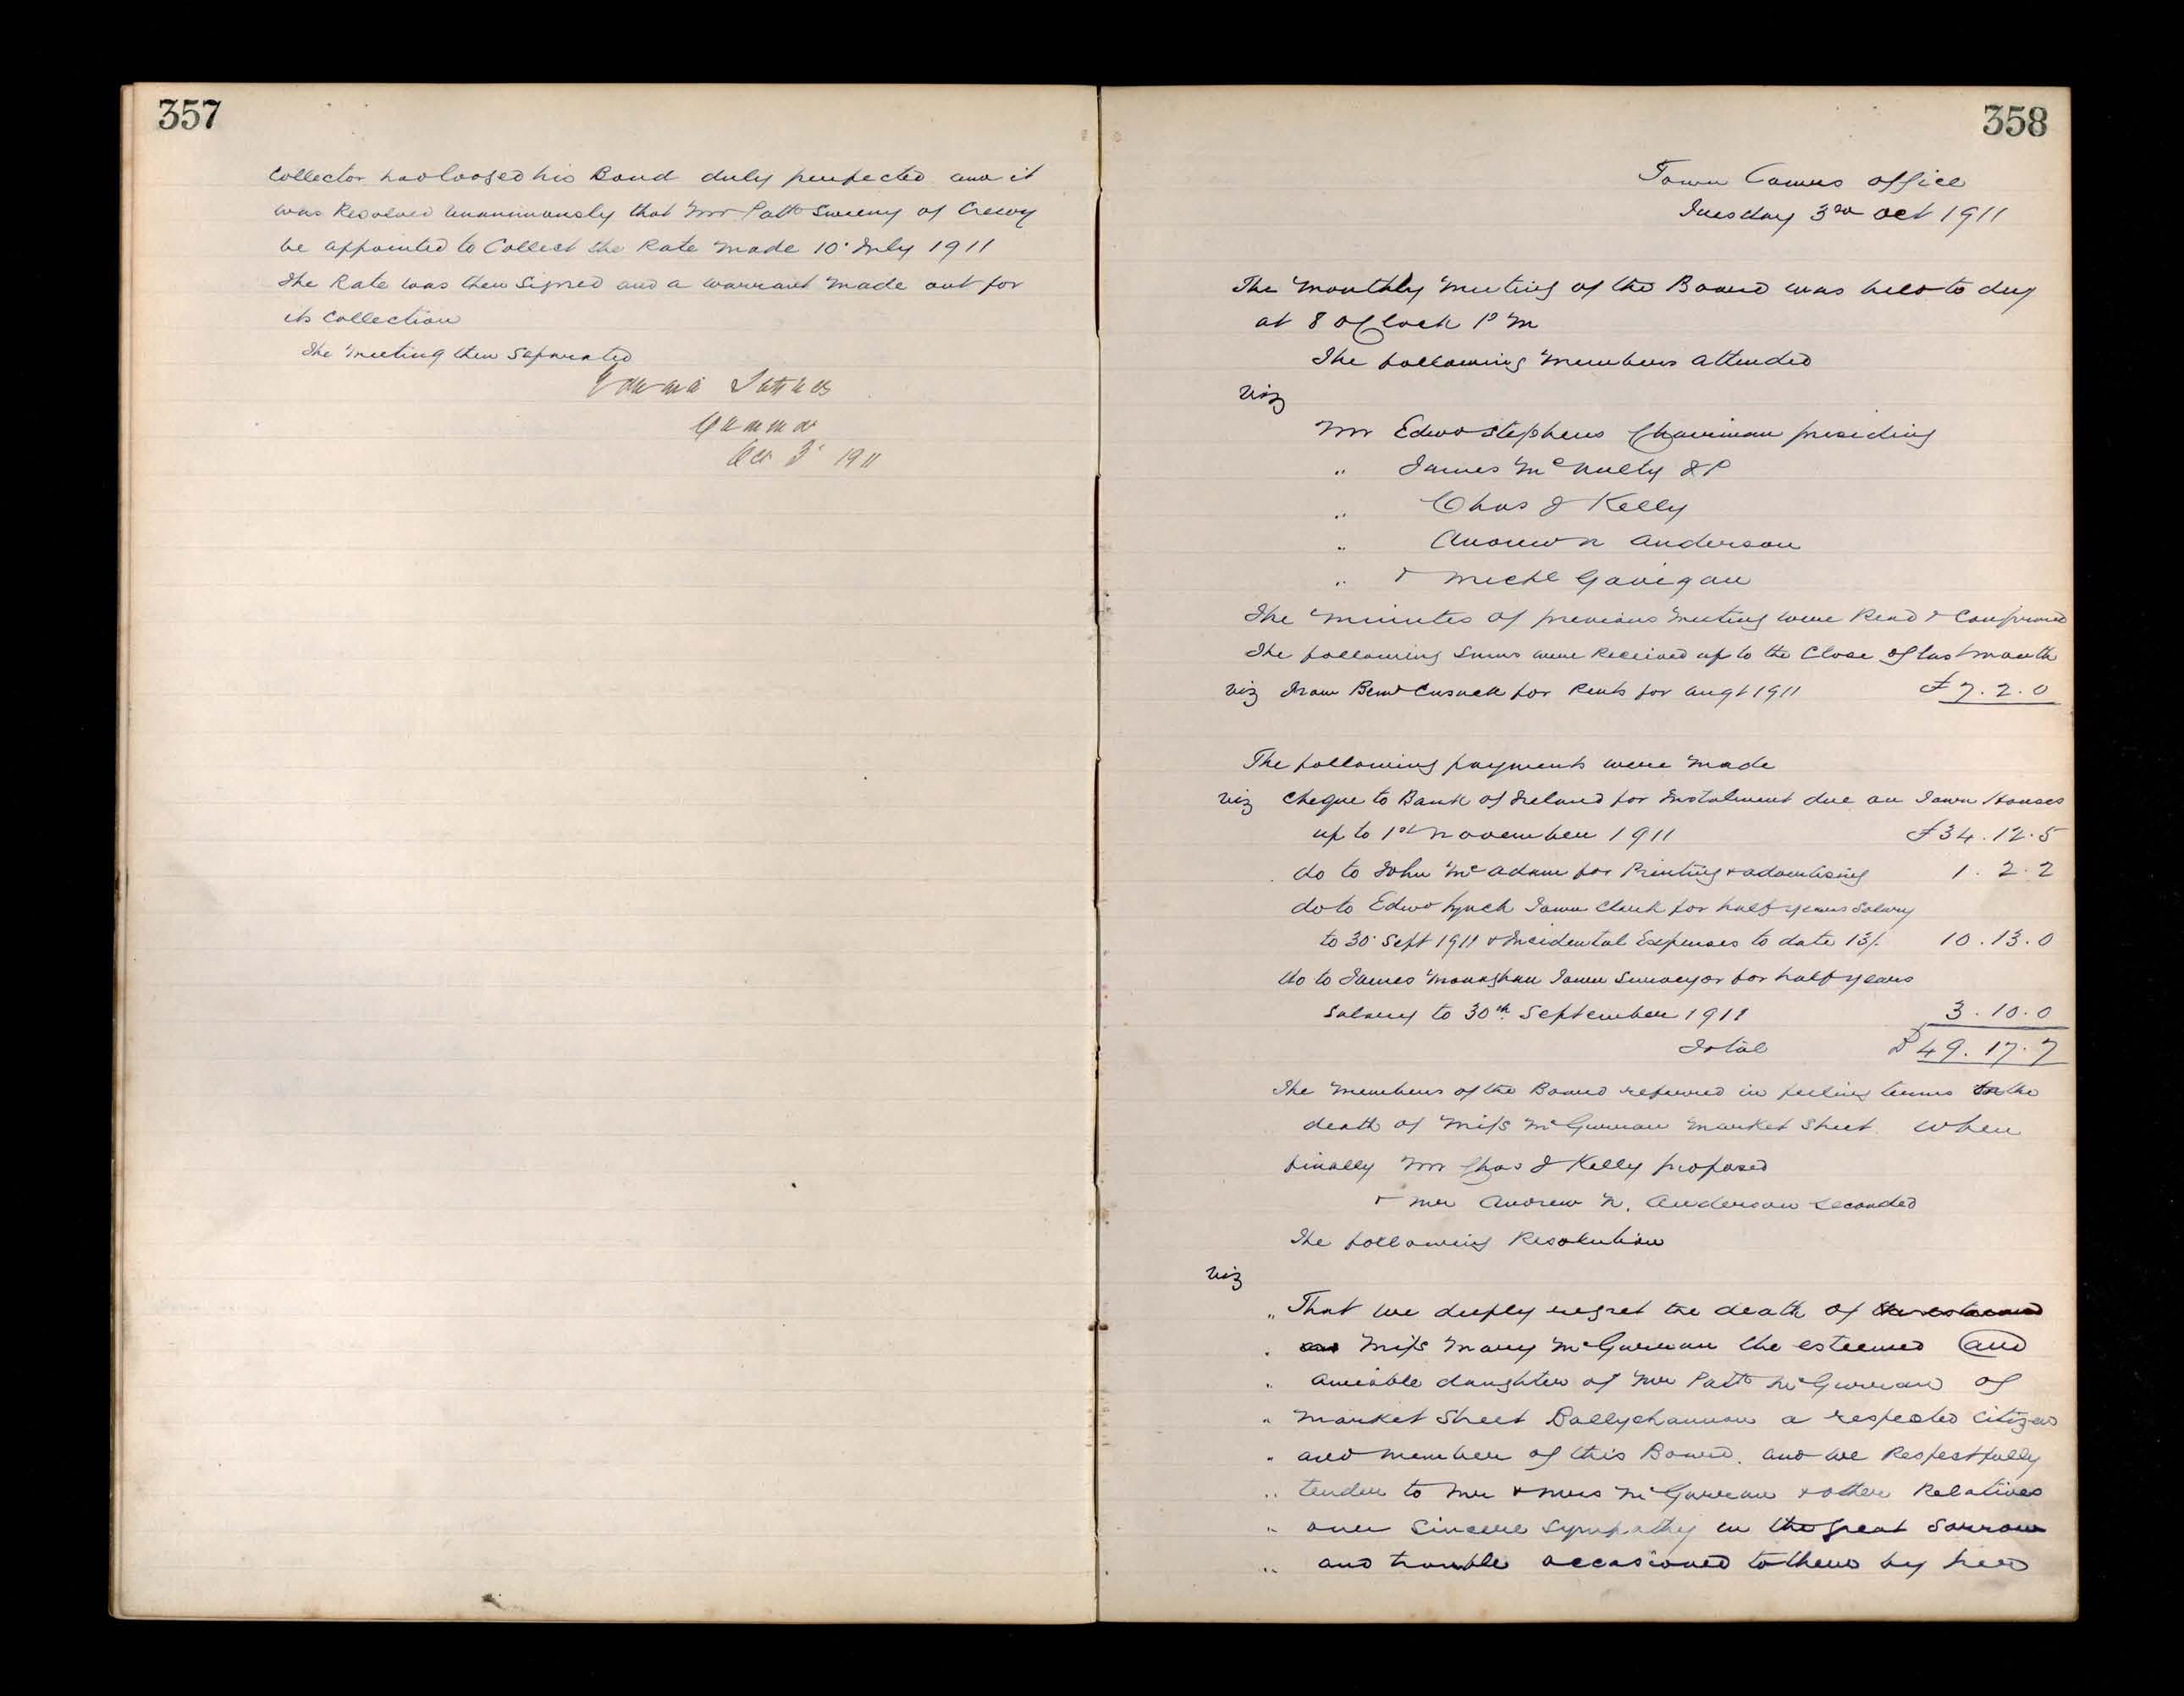 357
Collector had lodged his Bond duly perfected and it
was Resolved unanimously that Mr Patk Sweeny of Creevy
be appointed to Collect the Rate made 10 July 1911
The Rate was then Signed and a warrant made out for
its Collection
The Meeting then Separated
Oct 3 1911
358
Town Comrs office
Tuesday 3rd Oct 1911
The Monthly Meeting of the Board was held to day
at 8 o'Clock P M
The following Members attended
viz
Mr Edwd Stephens Chairman presiding
" James McNulty JP
" Chas J Kelly
" Andrew N Anderson
" & Michl Gavigan
The Minutes of previous Meeting were Read & Confirmed
The following Sums were Received up to the Close of last month
viz From Bernd Cusack for Rents for Augt 1911 £7.2.0
The following payments were made
viz Cheque to Bank of Ireland for Instalment due on Town Houses
up to 1st November 1911 £34.12.5
do to John McAdam for Printing & advertising 1.2.2
do to Edwd Lynch Town Clerk for half years Salary
to 30 Sept 1911 & Incidental Expenses to date 13/. 10.13.0
do to James Monaghan Town Surveyor for half years
Salary to 30th September 1911 3.10.0
Total £49.17.7
The Members of the Board referred in feeling terms to the
death of Miss McGurran Market Street when
finally Mr Chas J Kelly proposed
& Mr Andrew N. Anderson seconded
The following Resolution
viz
" That we deeply regret the death of
" Miss Mary McGurran the esteemed and
" amiable daughter of Mr Patk McGurran of
" Market Street Ballyshannon a respected Citizen
" and member of this Board. and we Respectfully
" tender to Mr & Mrs McGurran & other Relatives
" our Sincere Sympathy in the great Sorrow
" and trouble occasioned to them by her